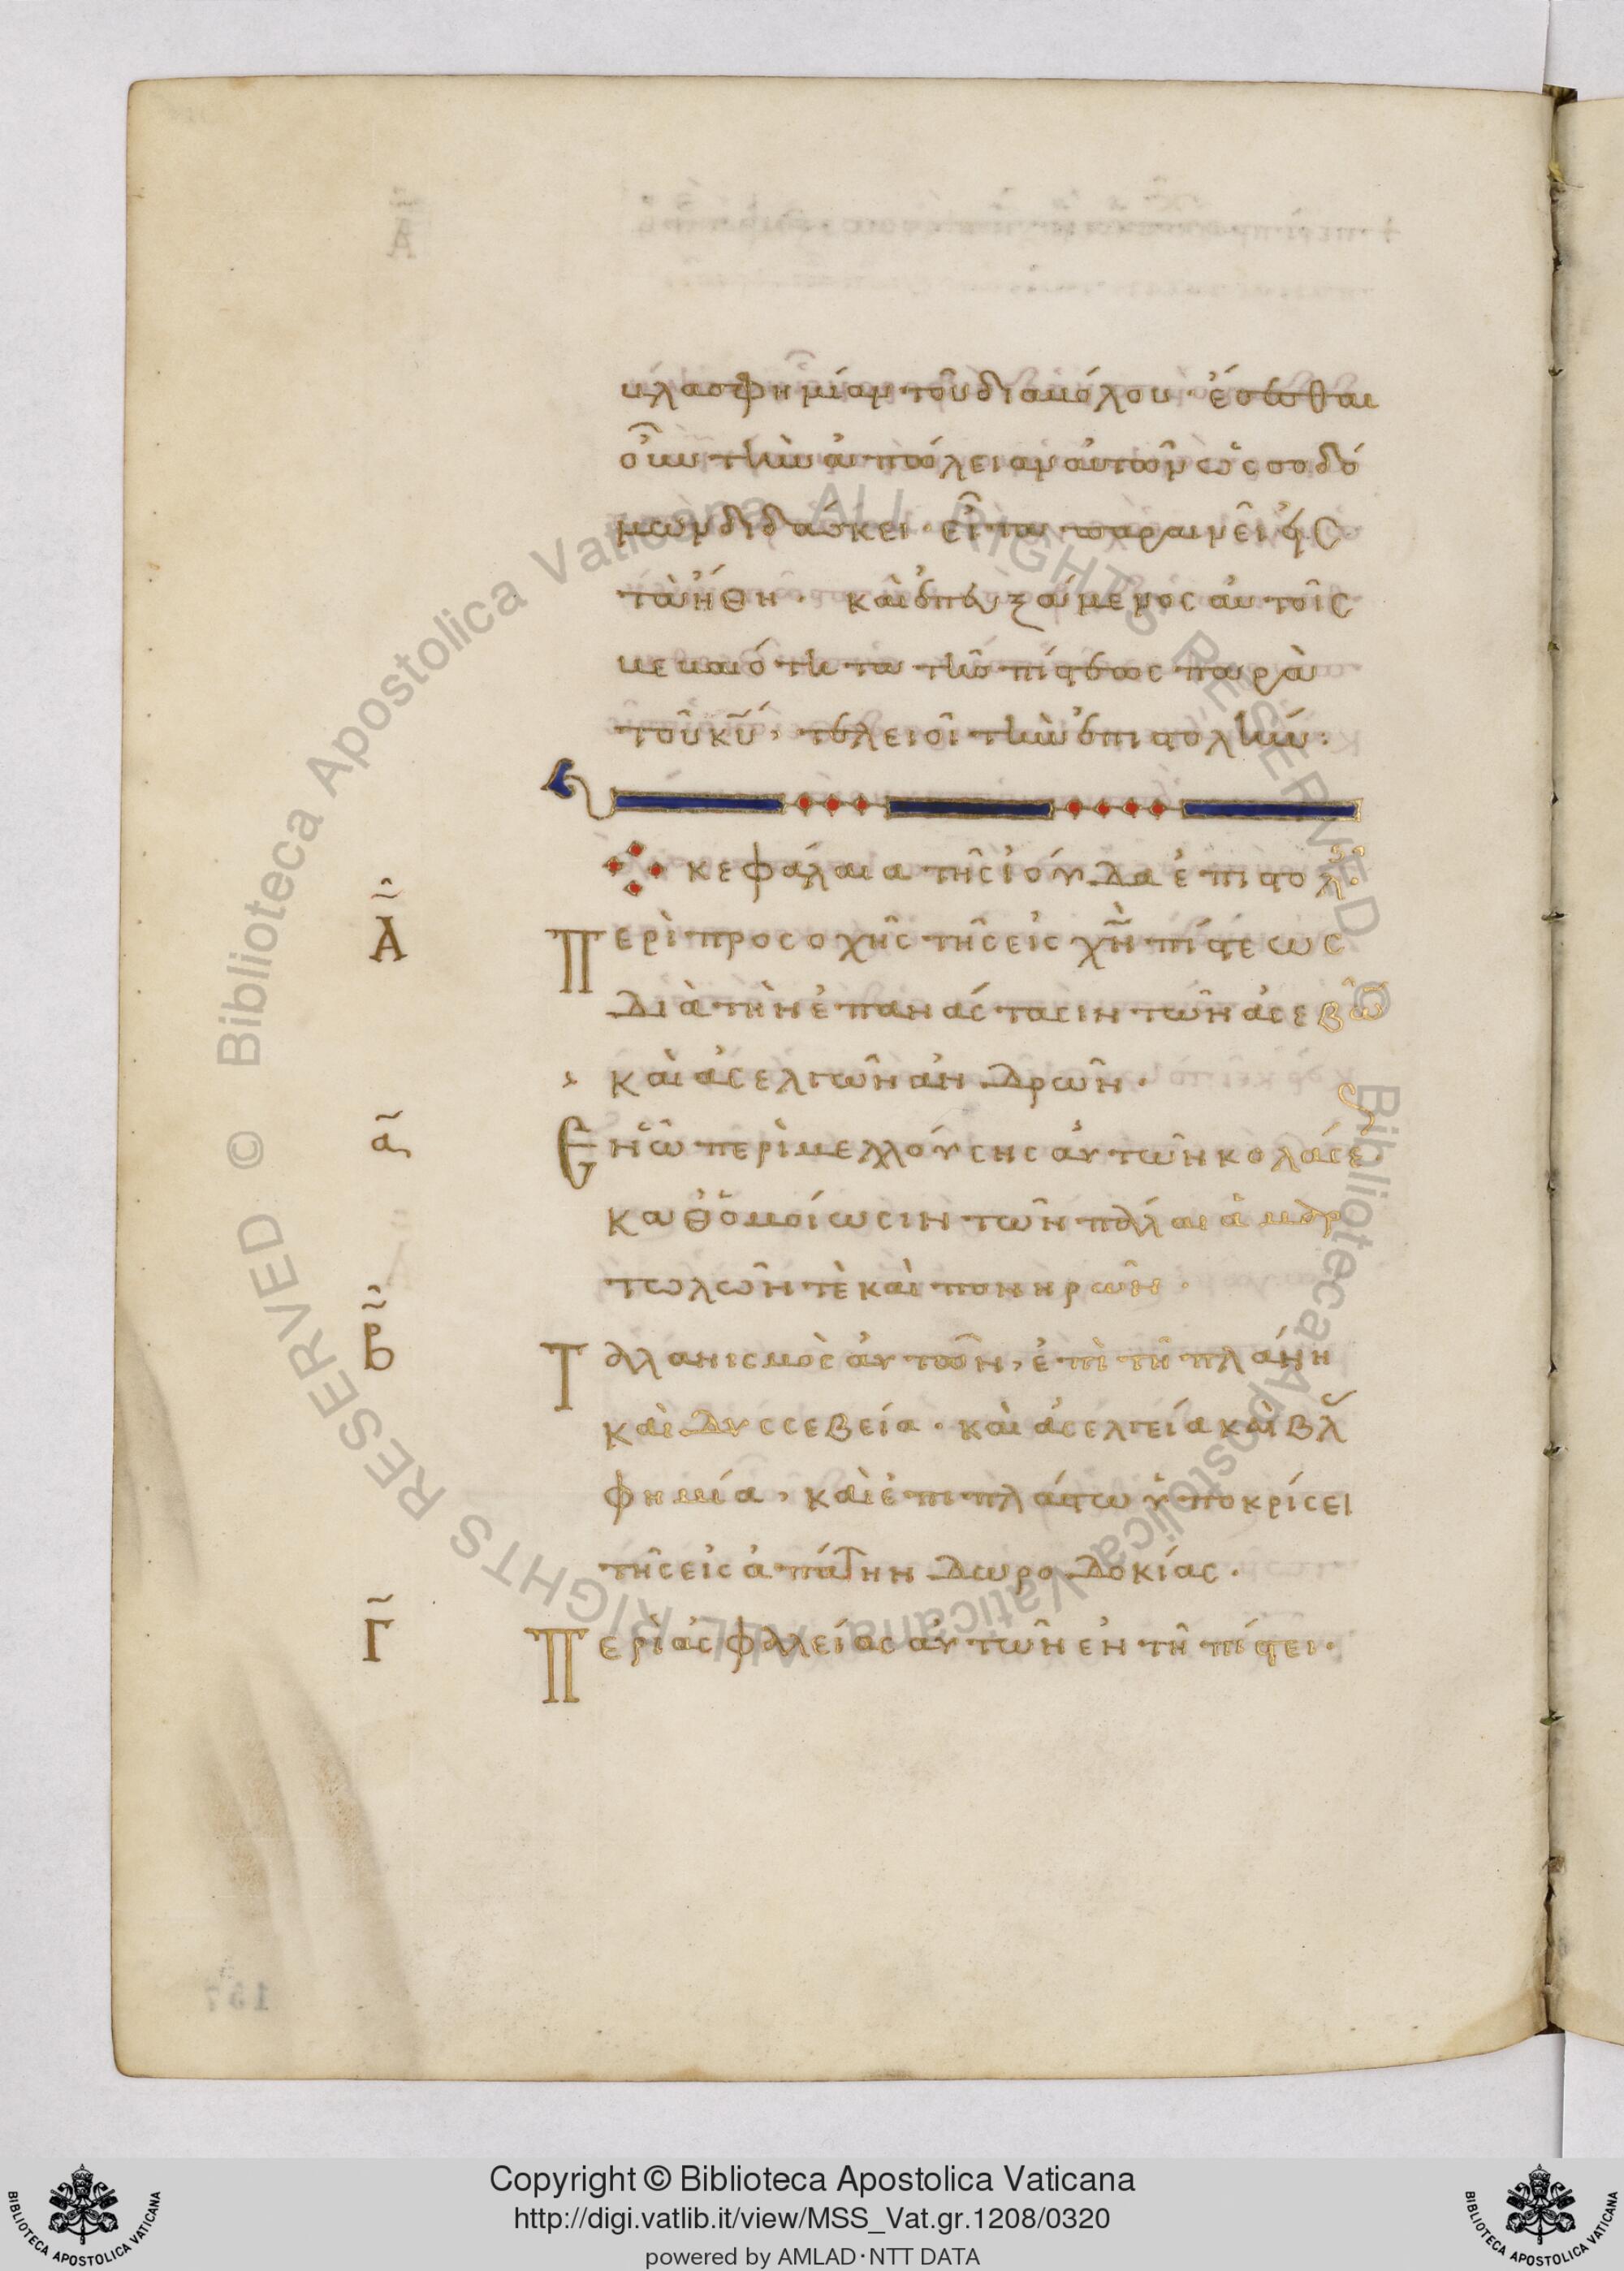 βλασφημίαν τοῦ διαβόλου· ἔσεσθαι
οὖν τὴν ἀπώλειαν αὐτῶν ὡς σοδό
μων διδάσκει· εἶτα παραινεῖ εἰς
τὰ ἤθη· καὶ ἐπευξάμενος αὐτοῖς
βεβαιότητα τῆς πίστεως παρὰ
τοῦ κ̅υ̅, τελειοῖ τὴν ἐπιστολήν:
κεφάλαια τῆς ἰούδα ἐπιστολ
Α
Περὶ προσοχῆς τῆς εἰς χ̅ν̅ πίστεως
διὰ τὴν ἐπανάστασιν τῶν ἀσεβῶ
καὶ ἀσελγῶν ἀνδρῶν·
α
Ἐν ᾧ περὶ μελλούσης αὐτῶν κολάσε
καθ᾽ ὁμοίωσιν τῶν πάλαι ἁμαρ
τωλῶν τὲ καὶ πονηρῶν·
Β
Ταλανισμὸς αὐτῶν, ἐπὶ τῆ πλάνη
καὶ δυσσεβεία· καὶ ἀσελγεία καὶ βλ
φημία, καὶ ἐπιπλάστω ὑποκρίσει
τῆς εἰς ἀπάτην δωροδοκίας·
Γ
Περὶ ἀσφαλείας αὐτῶν ἐν τῆ πίστει·
157
© Biblioteca Apostolica Vaticana ALL RIGHTS RESERVED
© Biblioteca Apostolica Vaticana ALL RIGHTS RESERVED
Copyright © Biblioteca Apostolica Vaticana
http://digi.vatlib.it/view/MSS_Vat.gr.1208/0320
powered by AMLAD·NTT DATA
BIBLIOTECA APOSTOLICA VATICANA
BIBLIOTECA APOSTOLICA VATICANA